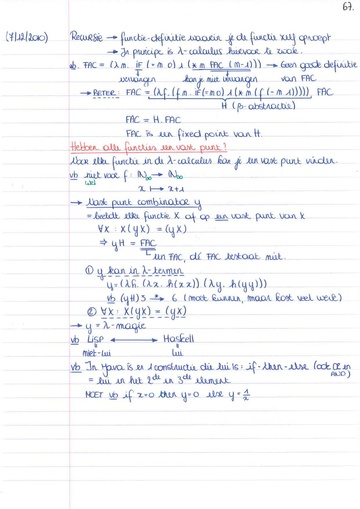 67.
(7/12/2010) Recursie → functie-definitie waarin je de functie zelf oproept
→ In principe is λ-calculus hiervoor te zwak.
vb. FAC = (λm. IF (= m 0) 1 (* m FAC (m-1))) → Geen goede definitie
vervangen kan je niet vervangen van FAC
→ BETER: FAC = (λf. (fm. if (= m 0) 1 (* m (f (- m 1))))) FAC
H (β-abstractie)
FAC = H. FAC
FAC is een fixed point van H.
Hebben alle functies een vast punt?
Voor elke functie in de λ-calculus kan je een vast punt vinden.
vb niet voor f: ℕ∞ → ℕ∞
wel x ↦ x+1
→ Vast punt combinator y
= beeldt elke functie X af op een vast punt van X
∀X : X(yX) = (yX)
⇒ yH = FAC
een FAC, dé FAC bestaat niet.
① y kan in λ-termen
y = (λh. (λx. h(xx)) (λy. h(yy)))
vb (yH) 3 →* 6 (moet kunnen, maar kost veel werk)
② ∀X : X(yX) = (yX)
→ y = λ-magie
vb LISP ↔ Haskell
niet-lui lui
vb In Java is er 1 constructie die lui is: if-then-else (ook OR en AND)
= lui in het 2de en 3de element
MOET vb if x=0 then y=0 else y = 1/x